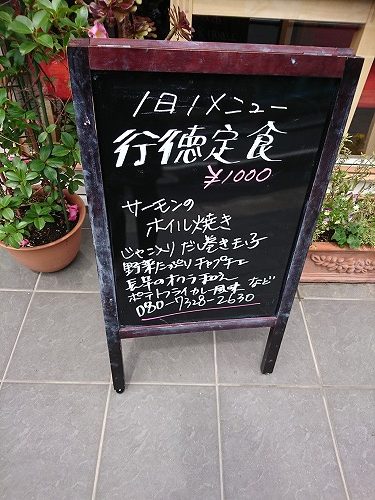 1日1メニュー
行徳定食
¥1000
サーモンの
ホイル焼き
じゃこ入りだし巻き玉子
野菜たっぷりチャプチェ
長芋のオクラ和え
ポテトフライカレー風味 など
080-7328-2630